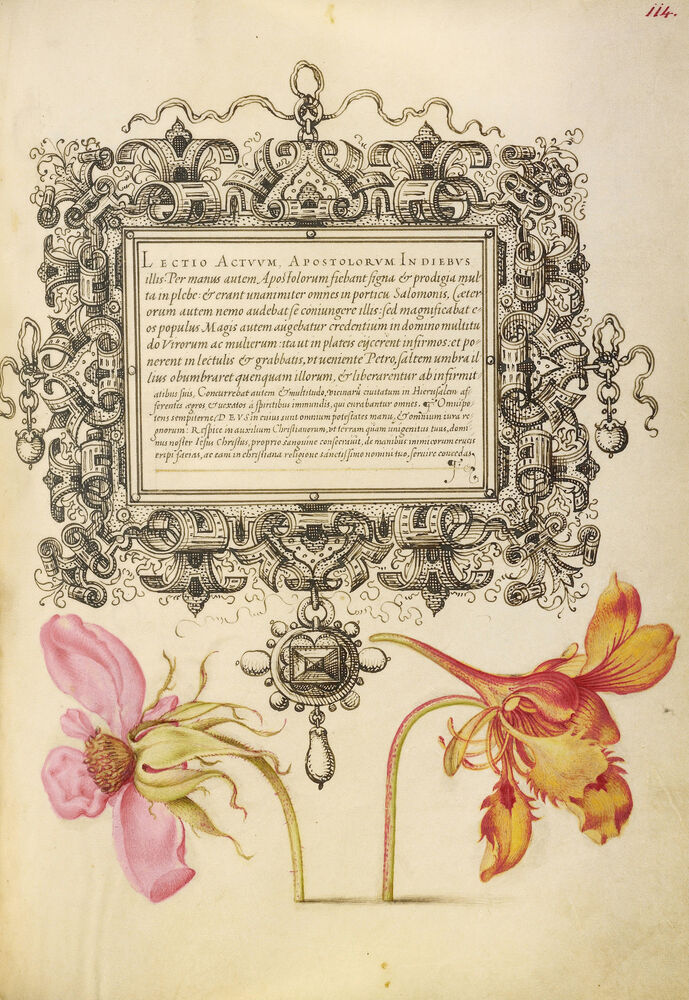 114.
LECTIO ACTVVM, APOSTOLORVM IN DIEBVS
illis: Per manus autem Apostolorum fiebant signa & prodigia mul
ta in plebe: & erant unanimiter omnes in porticu Salomonis, Cæter
orum autem nemo audebat se coniungere illis: sed magnificabat e-
os populus Magis autem augebatur credentium in domino multitu
do Virorum ac mulierum: ita ut in plateis eijcerent infirmos: et po-
nerent in lectulis & grabbatis, vt ueniente Petro, saltem umbra il
lius obumbraret quenquam illorum, & liberarentur ab infirmit
atibus suis, Concurrebat autem & multitudo, vicinarū ciuitatum in Hierusalem af
ferentes ægros & uexatos à spiritibus immundis, qui curabantur omnes. Omnipo-
tens sempiterne, DEVS in cuius sunt omnium potestates manu, & omnium iura re
gnorum: Respice in auxilium Christianorum, vt terram quam unigenitus tuus, domi-
nus noster Iesus Christus, proprio sanguine consecrauit, de manibus inimicorum crucis
eripi facias, ac eam in christiana religione sanctissimo nomini tuo, seruire concedas.